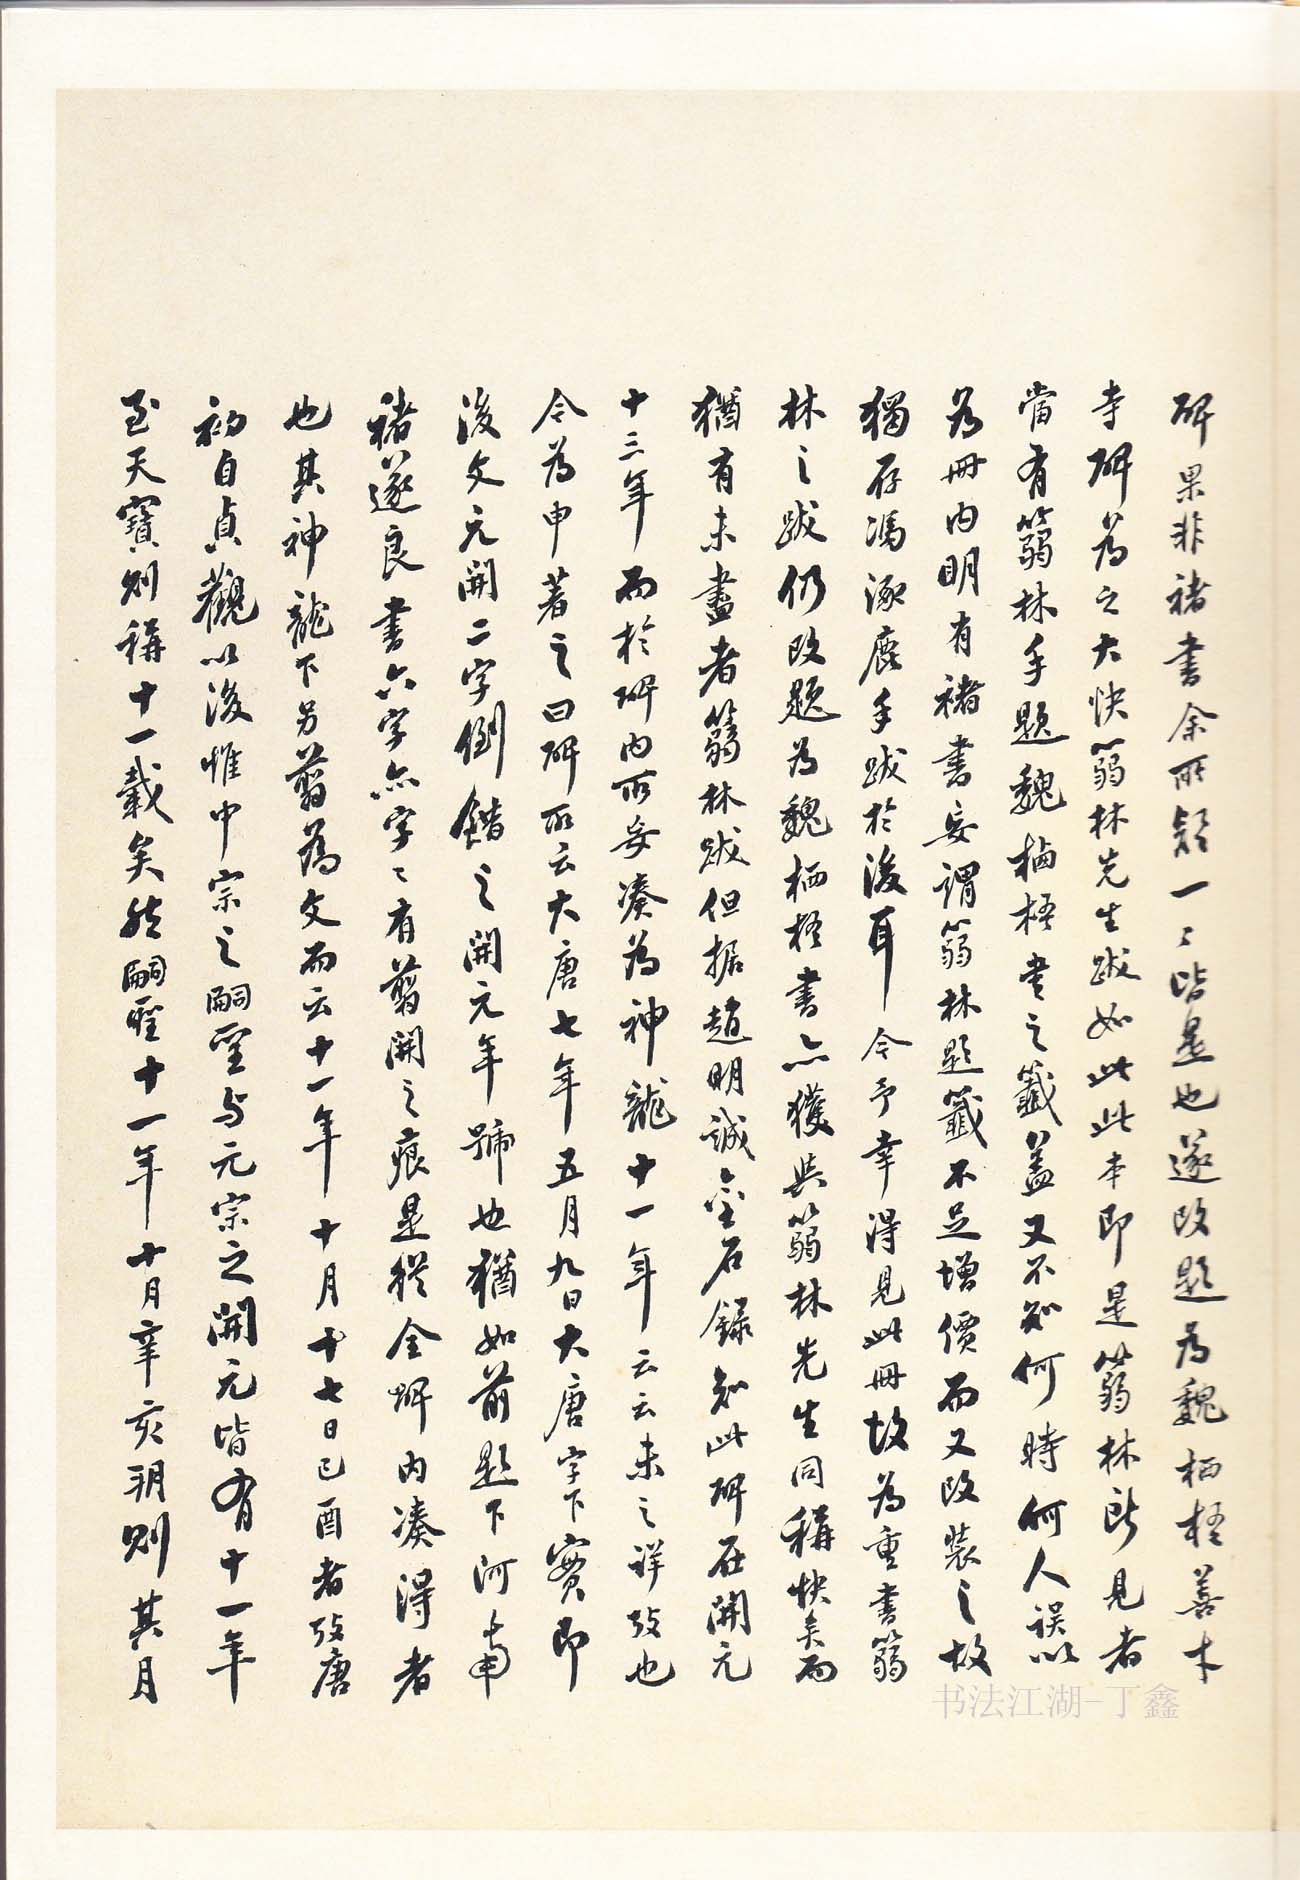 碑果非褚書余所疑一〻皆是也遂改題為魏栖梧善才
寺碑為之大快篛林先生跋如此此本即是篛林所見者
當有篛林手題魏栖梧書之籤蓋又不知何時何人誤以
為冊内明有褚書妄謂篛林題籤不足增價而又改裝之故
獨存馮涿鹿手跋於後耳今予幸得見此冊故為重書篛
林之跋仍改題為魏栖梧書亦獲與篛林先生同稱快矣而
猶有未盡者篛林跋但据趙明誠金石錄知此碑在開元
十三年而於碑内所妄湊為神龍十一年云云未之詳攷也
今為申著之曰碑所云大唐七年五月九日大唐字下實即
後文元開二字倒錯之開元年號也猶如前題下河南
褚遂良書六字亦字〻有翦開之痕是從全碑内湊得者
也其神龍下另翦為文而云十一年十月十七日己酉者攷唐
初自貞觀以後惟中宗之嗣聖与元宗之開元皆有十一年
至天寶則稱十一載矣然嗣聖十一年十月辛亥朔則其月
书法江湖-丁鑫